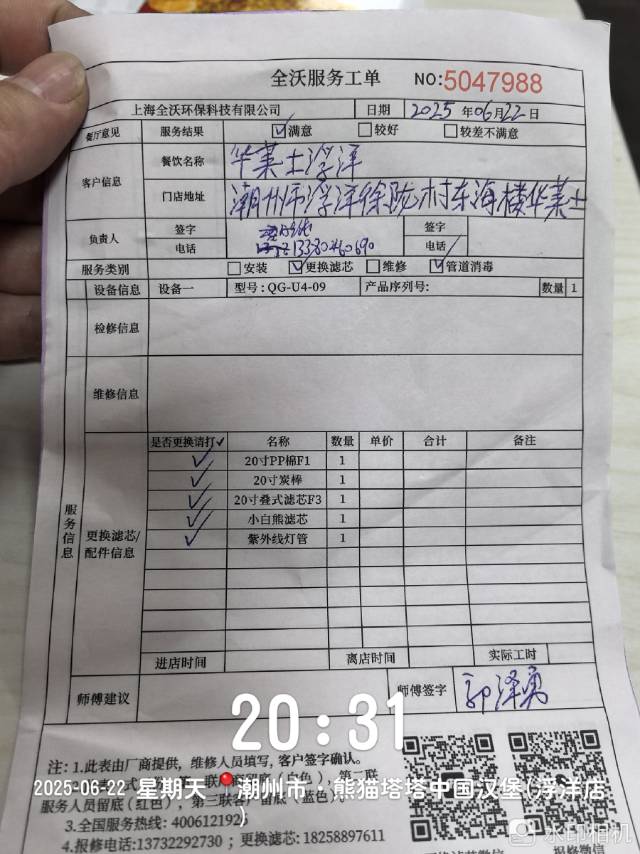 全沃服务工单 NO:5047988
上海全沃环保科技有限公司 日期 2025年06月22日
餐厅意见 服务结果 ☑满意 □较好 □较差不满意
客户信息 餐饮名称 华莱士浮洋
门店地址 潮州市浮洋徐陇村东海楼华莱士
负责人 签字 签字
电话 13380460690 电话
服务类别 □安装 ☑更换滤芯 □维修 ☑管道消毒
设备信息 设备一 型号:QG-U4-09 产品序列号: 数量 1
检修信息
维修信息
服务信息
更换滤芯/配件信息
是否更换请打✓ 名称 数量 单价 合计 备注
✓ 20寸PP棉F1 1
✓ 20寸炭棒 1
✓ 20寸叠式滤芯F3 1
✓ 小白熊滤芯 1
✓ 紫外线灯管 1
进店时间 离店时间 实际工时
师傅建议 师傅签字 郭泽勇
20:31
注:1.此表由厂商提供,维修人员填写,客户签字确认。
2025-06-22 星期天 潮州市·熊猫塔塔中国汉堡(浮洋店)
服务人员留底(红色),第三联客户留底(蓝色)。
3.全国服务热线:4006121921
4.报修电话:13732292730;更换滤芯:18258897611
报修微信
水印相机